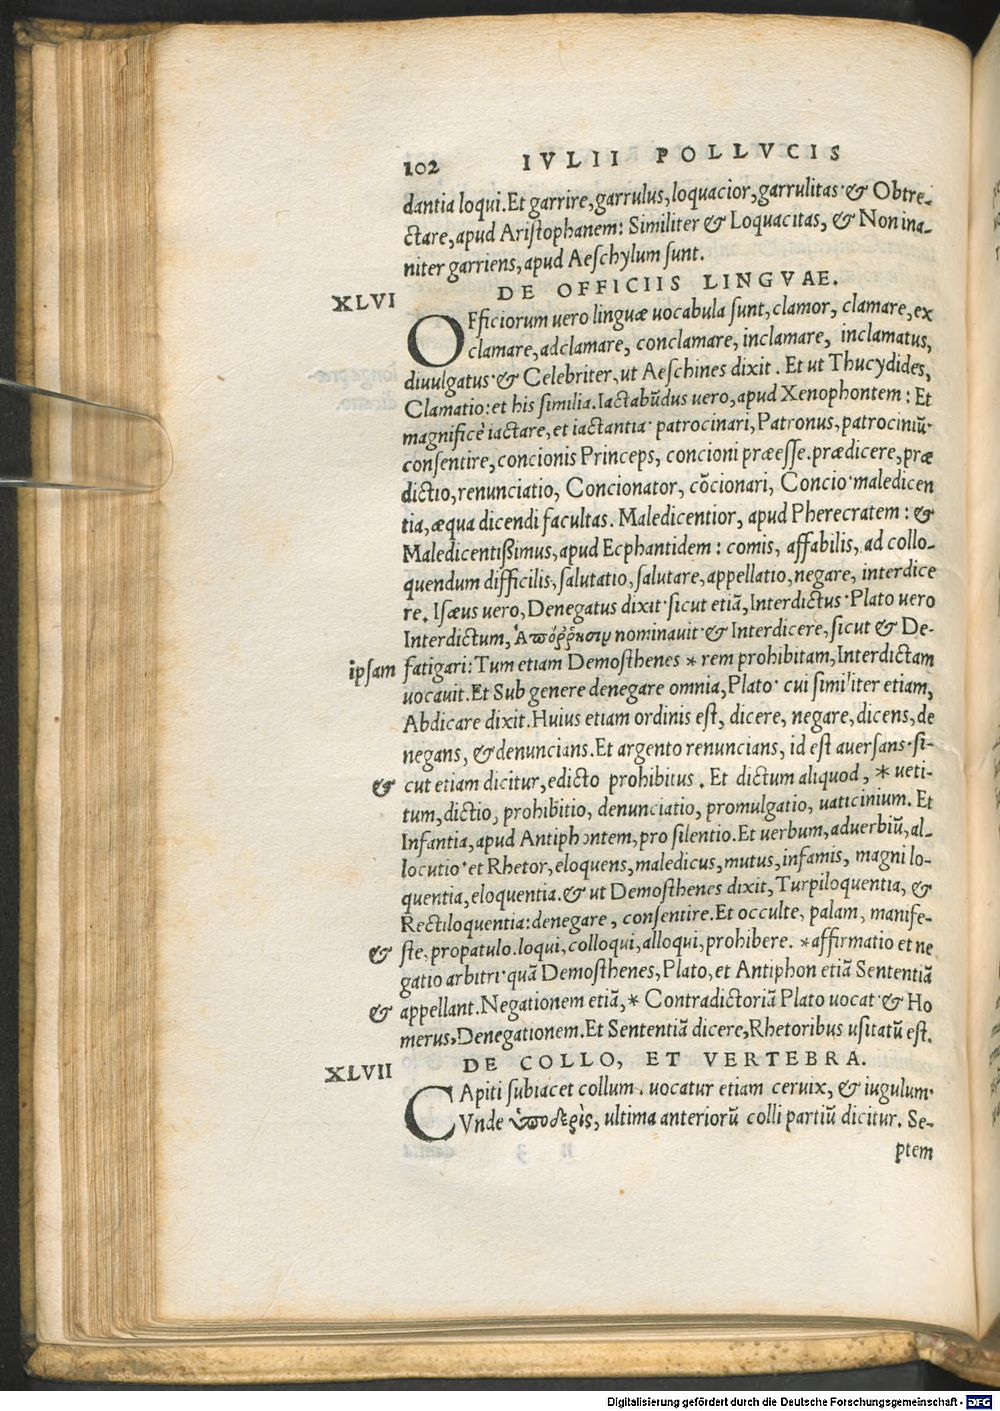 102 IVLII POLLVCIS
dantia loqui. Et garrire, garrulus, loquacior, garrulitas· & Obtre-
ctare, apud Aristophanem: Similiter & Loquacitas, & Non ina-
niter garriens, apud Aeschylum sunt.
XLVI DE OFFICIIS LINGVAE.
OFficiorum uero linguæ uocabula sunt, clamor, clamare, ex
clamare, adclamare, conclamare, inclamare, inclamatus,
diuulgatus· & Celebriter, ut Aeschines dixit. Et ut Thucydides,
Clamatio: et his similia. Iactabũdus uero, apud Xenophontem: Et
magnificè iactare, et iactantia· patrocinari, Patronus, patrociniũ·
consentire, concionis Princeps, concioni præesse. prædicere, præ
dictio, renunciatio, Concionator, cõcionari, Concio· maledicen
tia, æqua dicendi facultas. Maledicentior, apud Pherecratem: &
Maledicentißimus, apud Ecphantidem: comis, affabilis, ad collo-
quendum difficilis, salutatio, salutare, appellatio, negare, interdice
re. Isæus uero, Denegatus dixit· sicut etiã, Interdictus· Plato uero
Interdictum, Ἀπόῤῥησιμ nominauit· & Interdicere, sicut & De-
ipsam fatigari: Tum etiam Demosthenes * rem prohibitam, Interdictam
uocauit. Et Sub genere denegare omnia, Plato· cui similiter etiam,
Abdicare dixit. Huius etiam ordinis est, dicere, negare, dicens, de
negans, & denuncians. Et argento renuncians, id est auersans· si-
& cut etiam dicitur, edicto prohibitus. Et dictum aliquod, * ueti-
tum, dictio, prohibitio, denunciatio, promulgatio, uaticinium. Et
Infantia, apud Antiphontem, pro silentio. Et uerbum, aduerbiũ, al-
locutio· et Rhetor, eloquens, maledicus, mutus, infamis, magni lo-
quentia, eloquentia. & ut Demosthenes dixit, Turpiloquentia, &
Rectiloquentia: denegare, consentire. Et occulte, palam, manife-
& ste, propatulo. loqui, colloqui, alloqui, prohibere. * affirmatio et ne
gatio arbitri· quã Demosthenes, Plato, et Antiphon etiã Sententiã
& appellant. Negationem etiã, * Contradictoriã Plato uocat· & Ho
merus, Denegationem. Et Sententiã dicere, Rhetoribus usitatũ est.
XLVII DE COLLO, ET VERTEBRA.
CApiti subiacet collum. uocatur etiam ceruix, & iugulum·
Vnde ὑποδερὶς, ultima anteriorũ colli partiũ dicitur. Se-
ptem
Digitalisierung gefördert durch die Deutsche Forschungsgemeinschaft - DFG